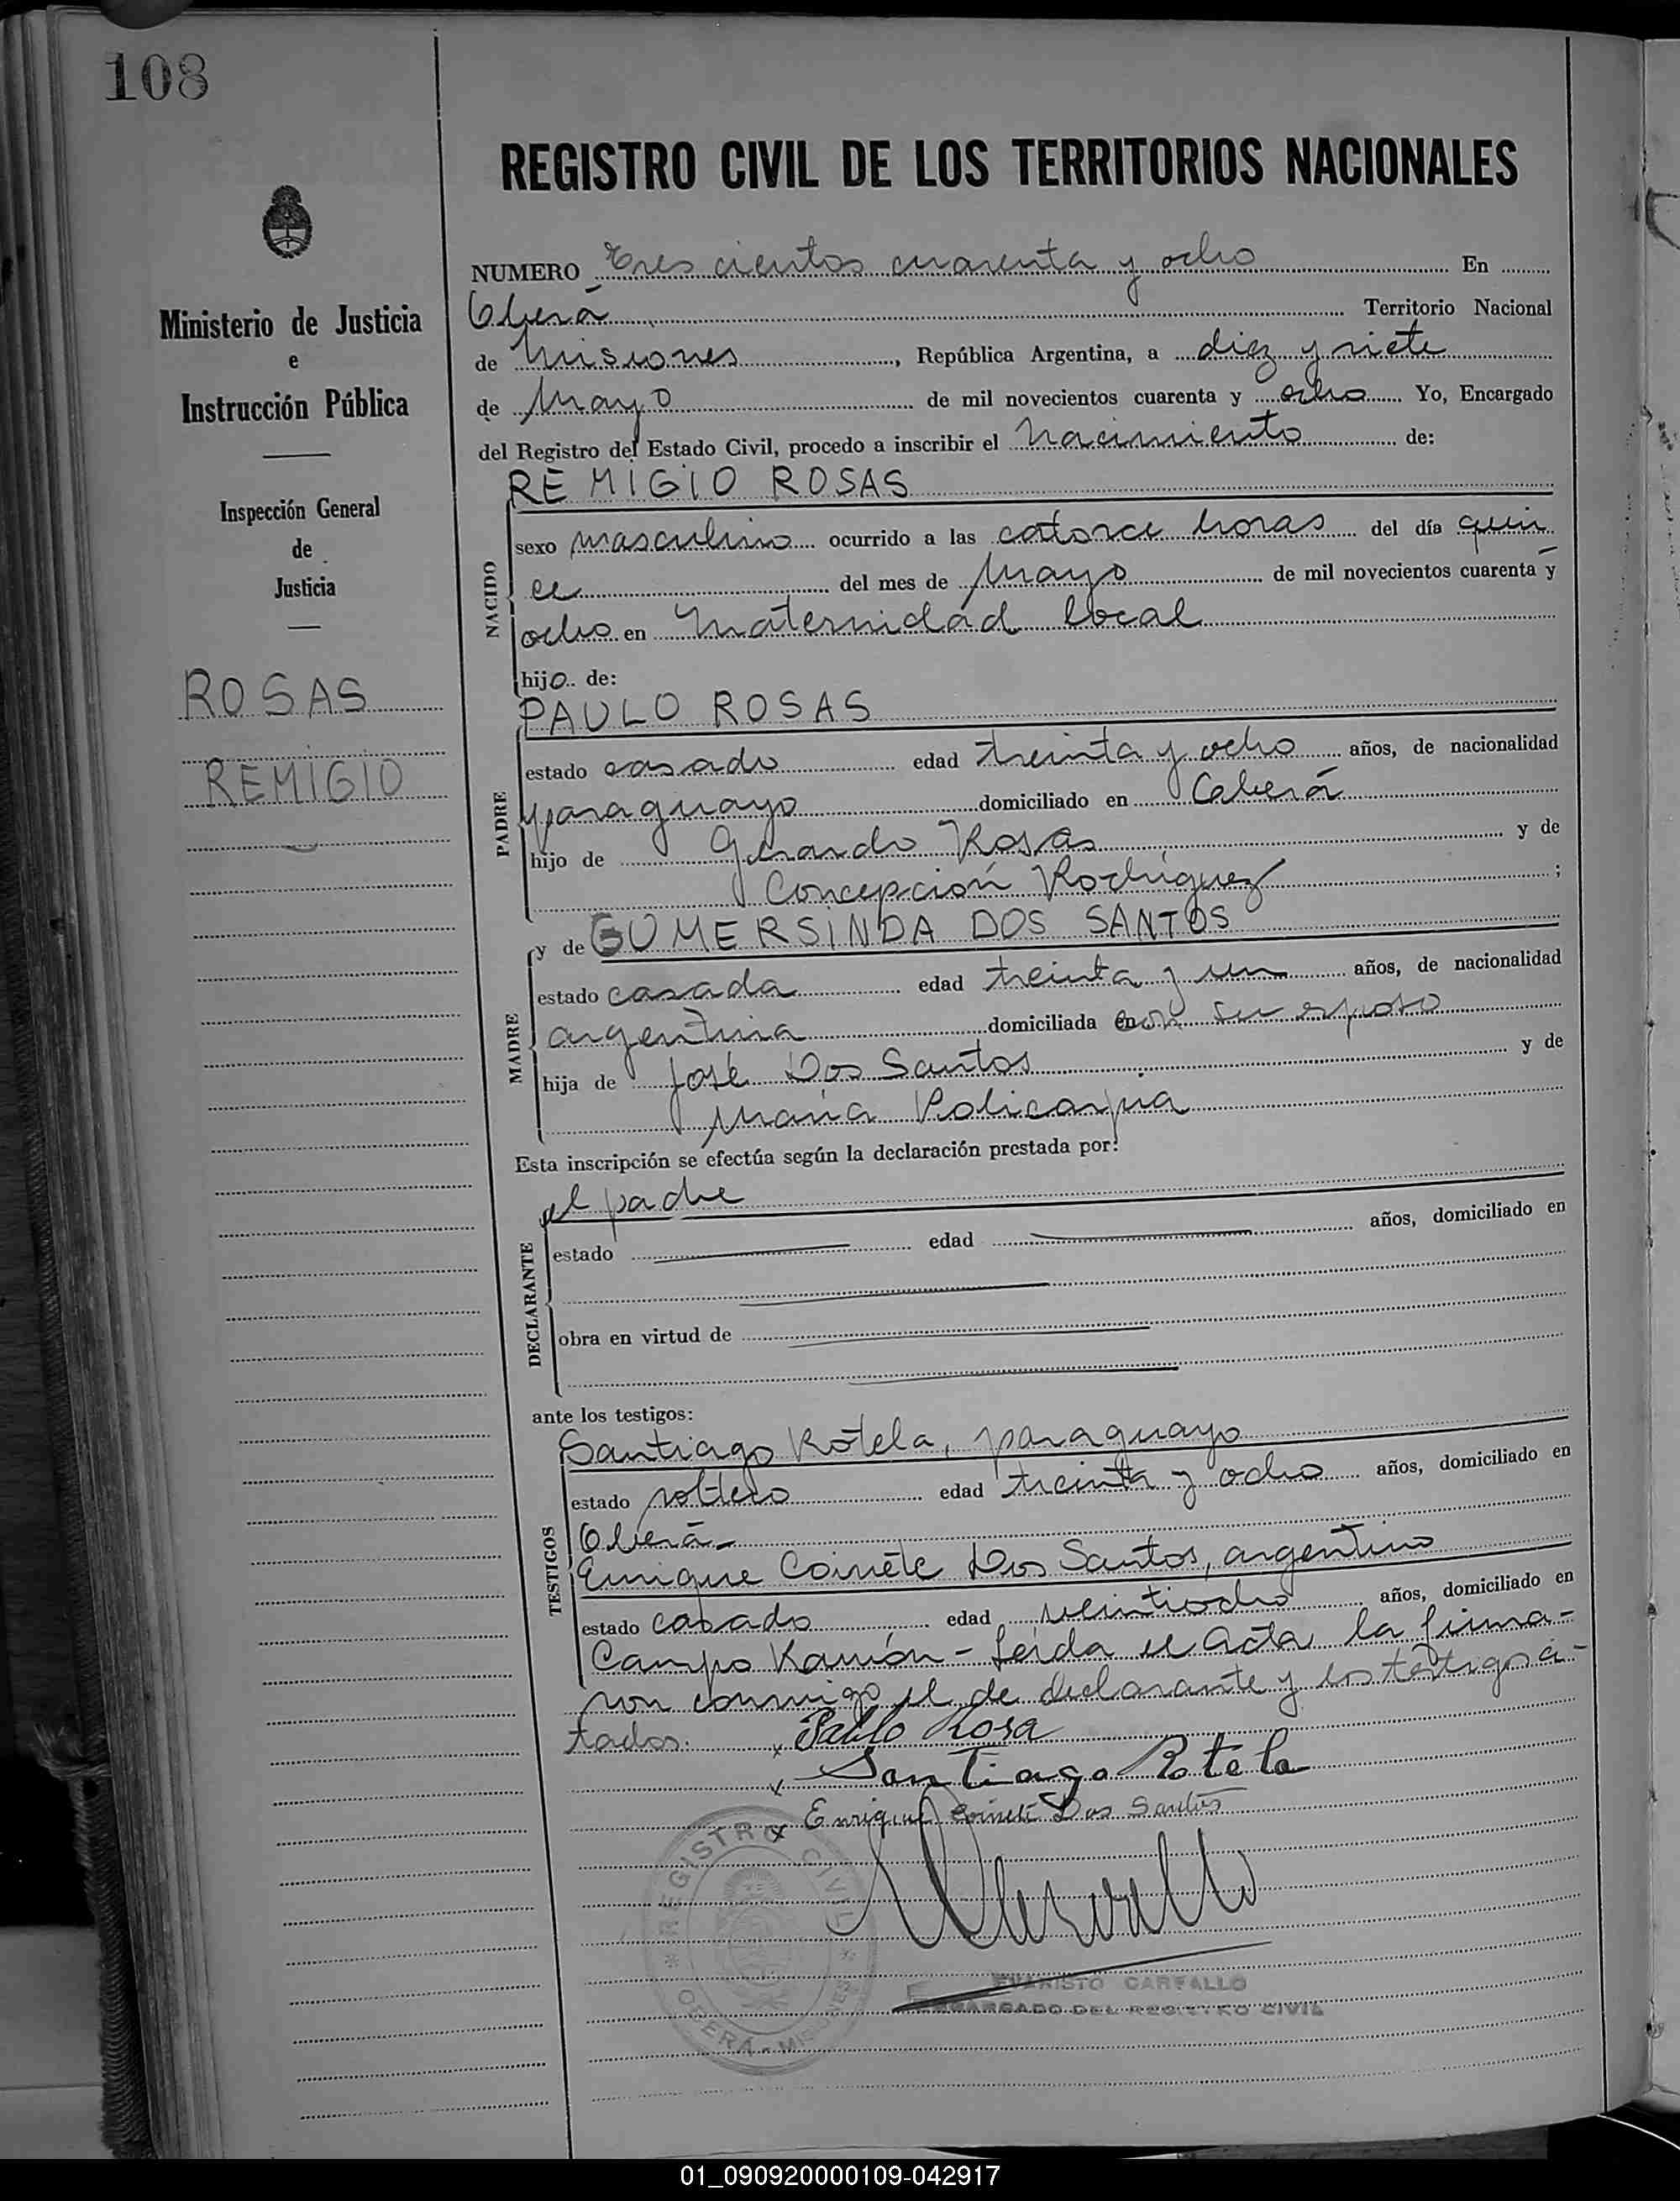 108
REGISTRO CIVIL DE LOS TERRITORIOS NACIONALES
Ministerio de Justicia
e
Instrucción Pública
Inspección General
de
Justicia
ROSAS
REMIGIO
NUMERO Tres cientos cuarenta y ocho En
Oberá Territorio Nacional
de Misiones, República Argentina, a diez y siete
de Mayo de mil novecientos cuarenta y ocho Yo, Encargado
del Registro del Estado Civil, procedo a inscribir el nacimiento de:
REMIGIO ROSAS
NACIDO
sexo masculino ocurrido a las catorce horas del día quin
ce del mes de Mayo de mil novecientos cuarenta y
ocho en Maternidad local
hijo de:
PAULO ROSAS
PADRE
estado casado edad treinta y ocho años, de nacionalidad
paraguayo domiciliado en Oberá
hijo de Gerardo Rosas y de
Concepción Rodríguez ;
y de GUMERSINDA DOS SANTOS
MADRE
estado casada edad treinta y un años, de nacionalidad
argentina domiciliada en con su esposo
hija de José Dos Santos y de
María Policarpia
Esta inscripción se efectúa según la declaración prestada por:
el padre
DECLARANTE
estado edad años, domiciliado en
obra en virtud de
ante los testigos:
Santiago Rotela, paraguayo
TESTIGOS
estado soltero edad treinta y ocho años, domiciliado en
Oberá-
Enrique Coinete Dos Santos, argentino
estado casado edad veintiocho años, domiciliado en
Campo Ramón - Leída el Acta la firma-
ron conmigo el de declarante y los testigos ci-
tados.
Pablo Rosa
Santiago Rotela
Enrique Coinete Dos Santos
REGISTRO CIVIL
OBERÁ - MISIONES
EVARISTO CARVALLO
ENCARGADO DEL REGISTRO CIVIL
01_090920000109-042917